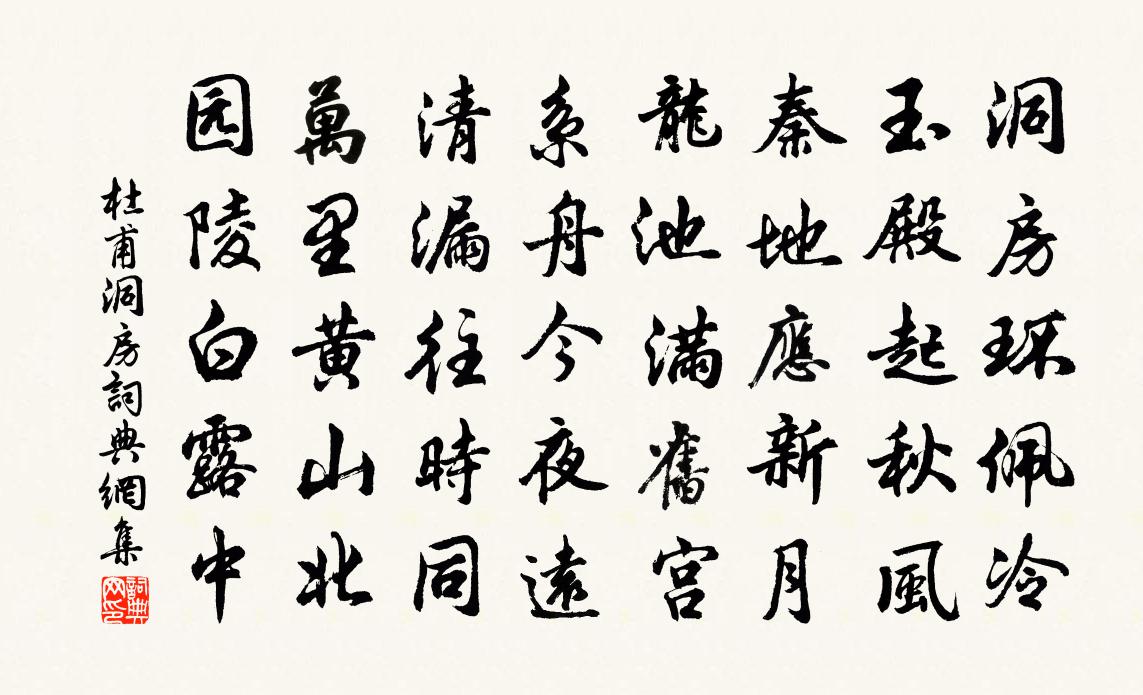 洞房环佩冷
玉殿起秋風
秦地應新月
龍池滿舊宫
系舟今夜遠
清漏往時同
萬里黄山北
园陵白露中
杜甫洞房詞典網集
詞典網印